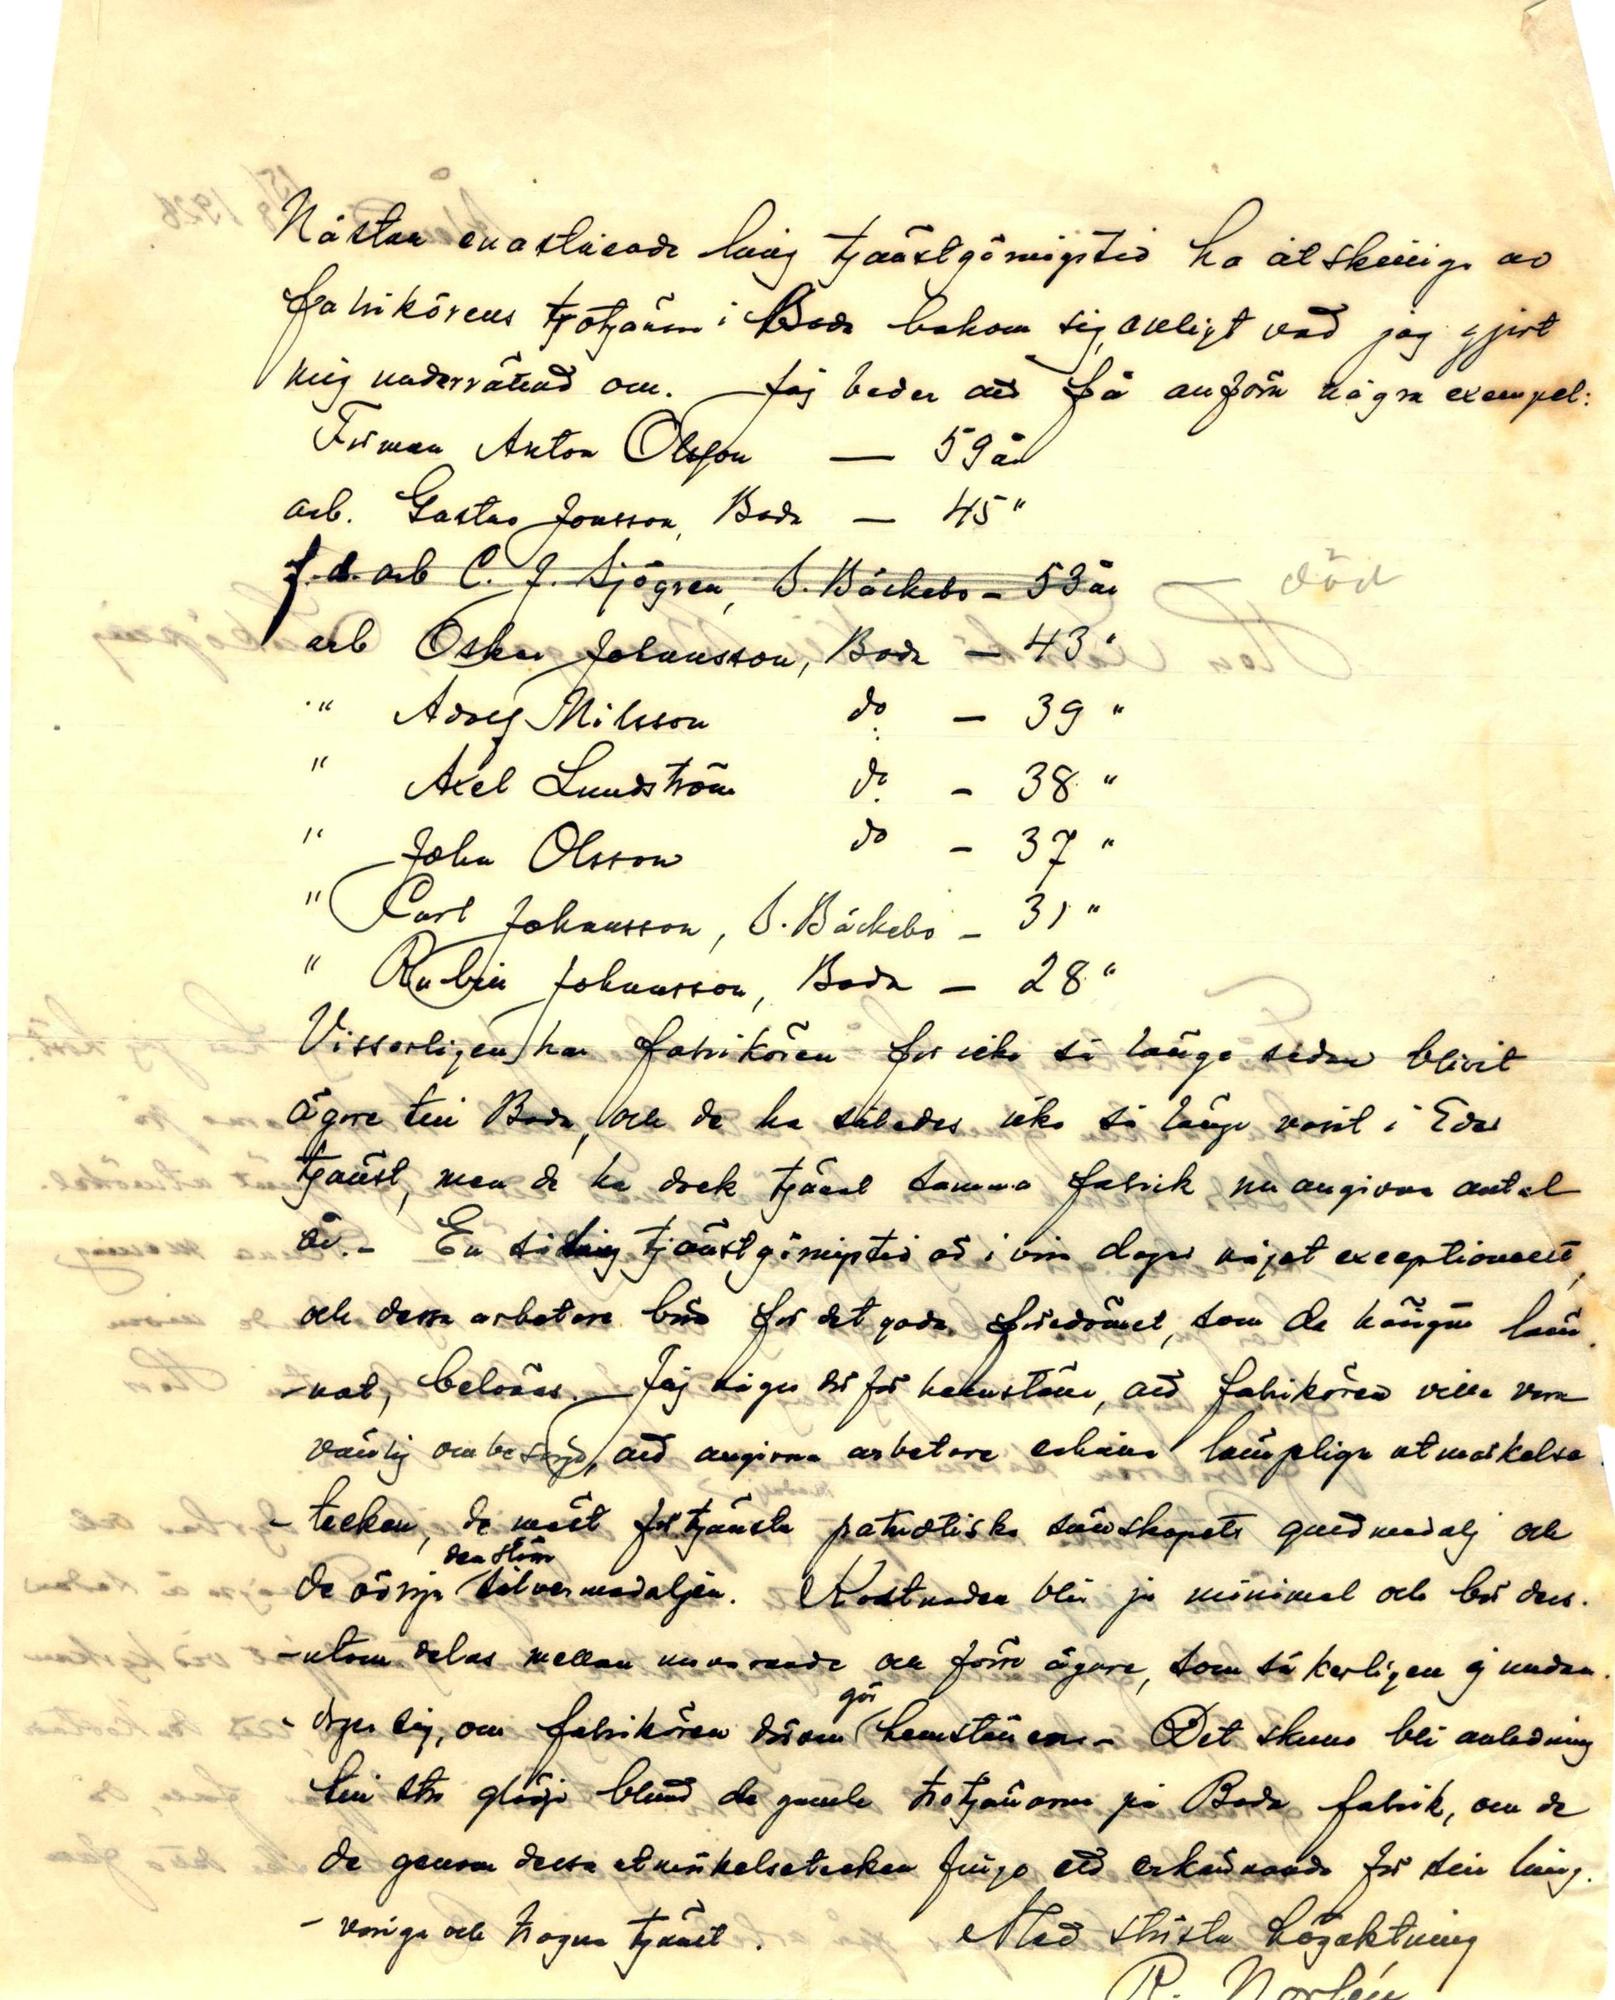 Nästan enastående lång tjänstgöringstid ha åtskilliga av
fabrikörens trotjänare i Boda bakom sig, enligt vad jag gjort
mig underrättad om. Jag beder att få anföra några exempel:
Förman Anton Olsson — 59 år
arb. Gustav Jonsson, Boda — 45 "
f.d. arb C. J. Sjögren, S. Bäckebo - 53 år — död
arb Oskar Johansson, Boda — 43 "
" Adolf Nilsson do. — 39 "
" Axel Lundström do. - 38 "
" John Olsson do - 37 "
" Carl Johansson, S. Bäckebo - 31 "
" Rubin Johansson, Boda — 28 "
Visserligen har fabrikören för icke så länge sedan blivit
ägare till Boda, och de ha således icke så länge varit i Eder
tjänst, men de ha dock tjänat samma fabrik nu angivna antal
år. - En så lång tjänstgöringstid är i våra dagar något exceptionellt,
och dessa arbetare böra för det goda föredömet, som de härigm läm
-nat, belönas. - Jag vågar därför hemställa, att fabrikören ville vara
vänlig ombesörja, att angivna arbetare erhålla lämpliga utmärkelse
- tecken, de mest förtjänta patriotiska sällskapets guldmedalj och
de övriga den större silvermedaljen. Kostnaden blir ju minimal och bör dess-
-utom delas mellan nuvarande och förre ägare, som säkerligen ej undan-
- drager sig, om fabrikören därom gör hemställan. - Det skulle bli anledning
till stor glädje bland de gamla trotjänarna på Boda fabrik, om de
de genom dessa utmärkelsetecken finge ett erkännande för sin lång-
- variga och trogna tjänst.
Med största högaktning
R. Norlén